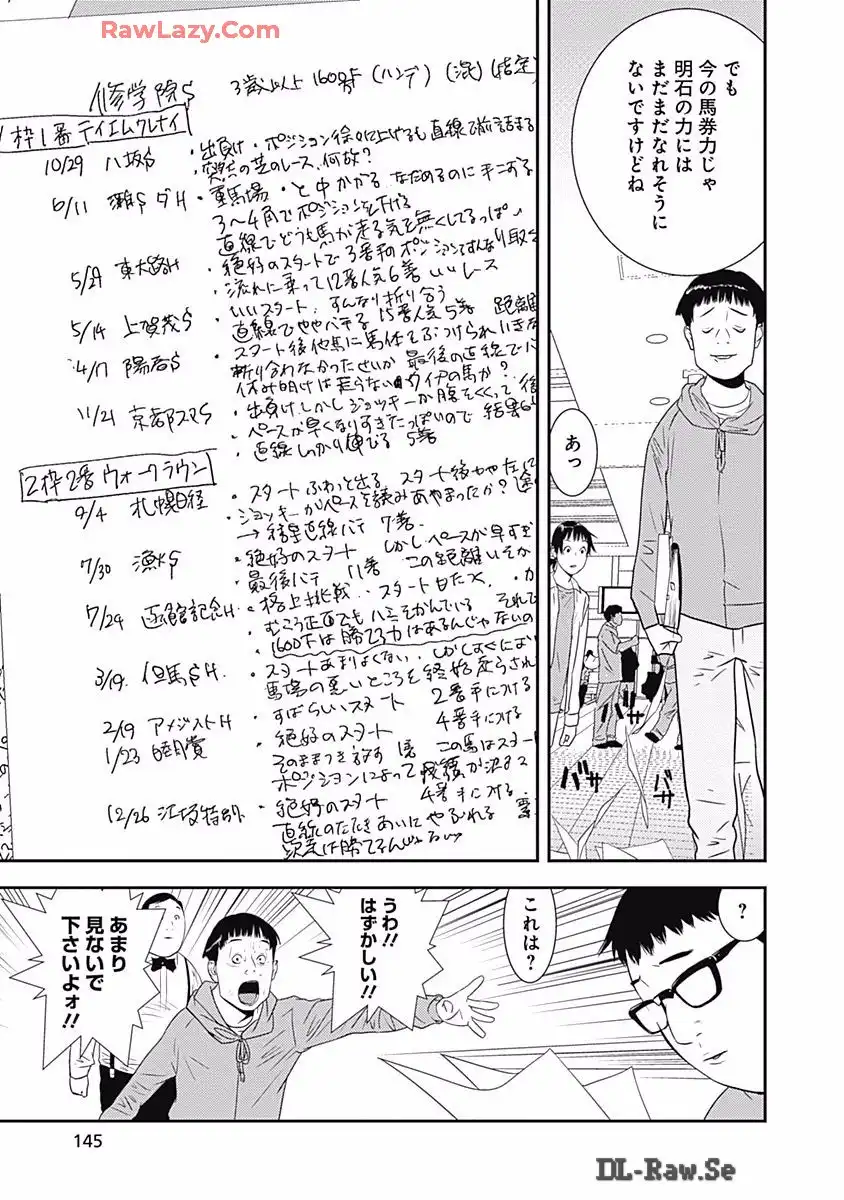 RawLazy.Com
でも
今の馬券力じゃ
明石の力には
まだまだなれそうに
ないですけどね
あっ
バサ
バサ
修学院S 3歳以上 1600下 (ハンデ) (混) (指定)
1枠1番 テイエムクレナイ
10/29 八坂S ・出負け・ポジション徐々に上げるも直線で前詰まる
・突然の芝のレース、何故?
6/11 灘S ダH ・重馬場・と中かかる なだめるのに手こずる
3〜4角でポジションを下げる
直線でどうも馬が走る気を無くしてるっぽい
5/29 東大路H ・絶好のスタートで3番手のポジションすんなり取
・流れに乗って12番人気6着 いいレース
5/14 上賀茂S ・いいスタート、すんなり折り合う
直線でややバテる 15番人気5着 距離
4/17 陽春S ・スタート後他馬に馬体をぶつけられ
折り合わなかったせいか 最後の直線でバ
休み明けは走らないタイプの馬か?
11/21 京都 ・出負け しかしジョッキーが腹をくくって後
・ペースが早くなりすぎたっぽいので 結果
・直線しっかり伸びる 5着
2枠2番 ウォークラウン
9/4 札幌日経 ・スタートふわっと出る スタート後やや左に
・ジョッキーがペースを読みあやまったか?
→ 結果直線バテ 7着.
7/30 漁火S ・絶好のスタート しかしペースが早すぎ
・最後バテ 11着 この距離
7/24 函館記念H ・格上挑戦 スタート
むこう正面でもハミをかんでいる それで
・1600下は勝てる力はあるんじゃないの
3/19 但馬S H. ・スタートあまりよくない. しかしすぐに
馬場の悪いところを終始走らされ
2/19 アメジストH ・すばらしいスタート 2番手につける
1/23 白梅賞 ・絶好のスタート 4番手につける
そのまま この馬はスター
ポジションによって成績が決まる
12/26 江坂特別 ・絶好のスタート 4番手につける.
直線のたたきあいにやぶれる
次走は勝てる
?
これは?
うわ!!
はずかしい!!
あまり
見ないで
下さいよォ!!
145
DL-Raw.Se